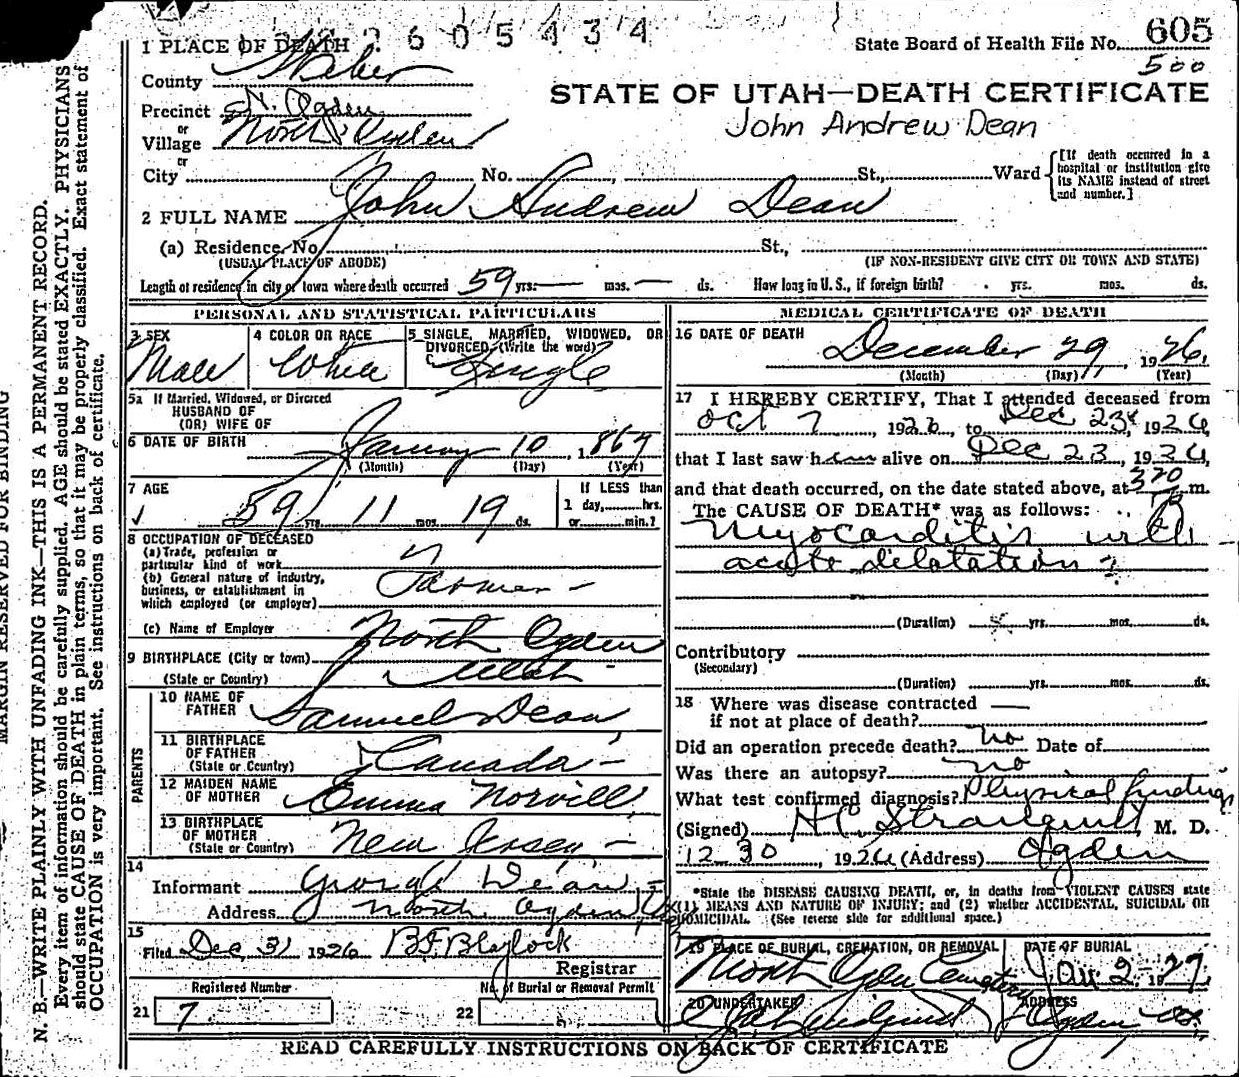 2605434
605
1 PLACE OF DEATH
State Board of Health File No.
500
County Weber
STATE OF UTAH—DEATH CERTIFICATE
Precinct N. Ogden
John Andrew Dean
or
Village North Ogden
or
City No. St., Ward
[If death occurred in a hospital or institution give its NAME instead of street and number.]
2 FULL NAME John Andrew Dean
(a) Residence, No. St.,
(USUAL PLACE OF ABODE) (IF NON-RESIDENT GIVE CITY OR TOWN AND STATE)
Length of residence in city or town where death occurred 59 yrs. — mos. — ds. How long in U. S., if foreign birth? yrs. mos. ds.
PERSONAL AND STATISTICAL PARTICULARS
3 SEX
Male
4 COLOR OR RACE
White
5 SINGLE, MARRIED, WIDOWED, OR DIVORCED (Write the word)
Single
5a If Married, Widowed, or Divorced
HUSBAND OF
(OR) WIFE OF
6 DATE OF BIRTH January 10, 1867
(Month) (Day) (Year)
7 AGE
59 yrs. 11 mos. 19 ds.
If LESS than
1 day, hrs.
or min.?
8 OCCUPATION OF DECEASED
(a) Trade, profession or
particular kind of work
(b) General nature of industry,
business, or establishment in
which employed (or employer)
Farmer -
(c) Name of Employer
9 BIRTHPLACE (City or town) North Ogden
(State or Country) Utah
PARENTS
10 NAME OF
FATHER Samuel Dean
11 BIRTHPLACE
OF FATHER
(State or Country) Canada -
12 MAIDEN NAME
OF MOTHER Emma Norvill
13 BIRTHPLACE
OF MOTHER
(State or Country) New Jersey -
14
Informant George Dean -
Address North Ogden, U
15
Filed Dec 31 1926 B F Blaylock
Registrar
Registered Number
21 7
No. of Burial or Removal Permit
22
MEDICAL CERTIFICATE OF DEATH
16 DATE OF DEATH
December 29, 1926
(Month) (Day) (Year)
17 I HEREBY CERTIFY, That I attended deceased from
Oct 7, 1926, to Dec 23, 1926,
that I last saw him alive on Dec 23, 1926,
and that death occurred, on the date stated above, at 3 20 P m.
The CAUSE OF DEATH* was as follows:
Myocarditis with
acute dilatation -
(Duration) yrs. mos. ds.
Contributory
(Secondary)
(Duration) yrs. mos. ds.
18 Where was disease contracted —
if not at place of death?
Did an operation precede death? no Date of
Was there an autopsy? no
What test confirmed diagnosis? Physical findings
(Signed) H C Stranquist, M. D.
12 30, 1926 (Address) Ogden
*State the DISEASE CAUSING DEATH, or, in deaths from VIOLENT CAUSES state
(1) MEANS AND NATURE OF INJURY; and (2) whether ACCIDENTAL, SUICIDAL OR
HOMICIDAL. (See reverse side for additional space.)
19 PLACE OF BURIAL, CREMATION, OR REMOVAL
North Ogden Cemetery
DATE OF BURIAL
Jan 2 1927
20 UNDERTAKER
Lindquist
ADDRESS
Ogden
READ CAREFULLY INSTRUCTIONS ON BACK OF CERTIFICATE
MARGIN RESERVED FOR BINDING
N. B.—WRITE PLAINLY WITH UNFADING INK—THIS IS A PERMANENT RECORD.
Every item of information should be carefully supplied. AGE should be stated EXACTLY. PHYSICIANS
should state CAUSE OF DEATH in plain terms, so that it may be properly classified. Exact statement of
OCCUPATION is very important. See instructions on back of certificate.